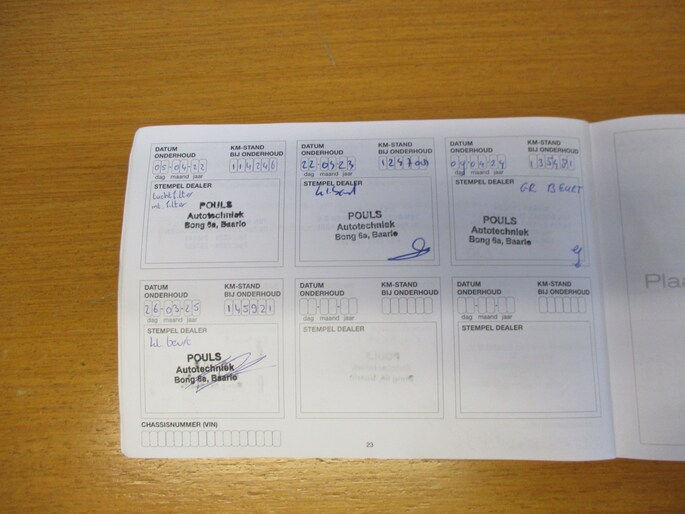 DATUM ONDERHOUD
KM-STAND BIJ ONDERHOUD
05-04-22
114246
dag maand jaar
STEMPEL DEALER
luchtfilter
int. filter
POULS
Autotechniek
Bong 6a, Baarlo
DATUM ONDERHOUD
KM-STAND BIJ ONDERHOUD
22-03-23
dag maand jaar
STEMPEL DEALER
POULS
Autotechniek
Bong 6a, Baarlo
DATUM ONDERHOUD
KM-STAND BIJ ONDERHOUD
dag maand jaar
STEMPEL DEALER
GR. BEURT
POULS
Autotechniek
Bong 6a, Baarlo
DATUM ONDERHOUD
KM-STAND BIJ ONDERHOUD
26-03-25
145921
dag maand jaar
STEMPEL DEALER
kl. beurt
POULS
Autotechniek
Bong 6a, Baarlo
DATUM ONDERHOUD
KM-STAND BIJ ONDERHOUD
dag maand jaar
STEMPEL DEALER
DATUM ONDERHOUD
KM-STAND BIJ ONDERHOUD
dag maand jaar
STEMPEL DEALER
CHASSISNUMMER (VIN)
23
Plaa